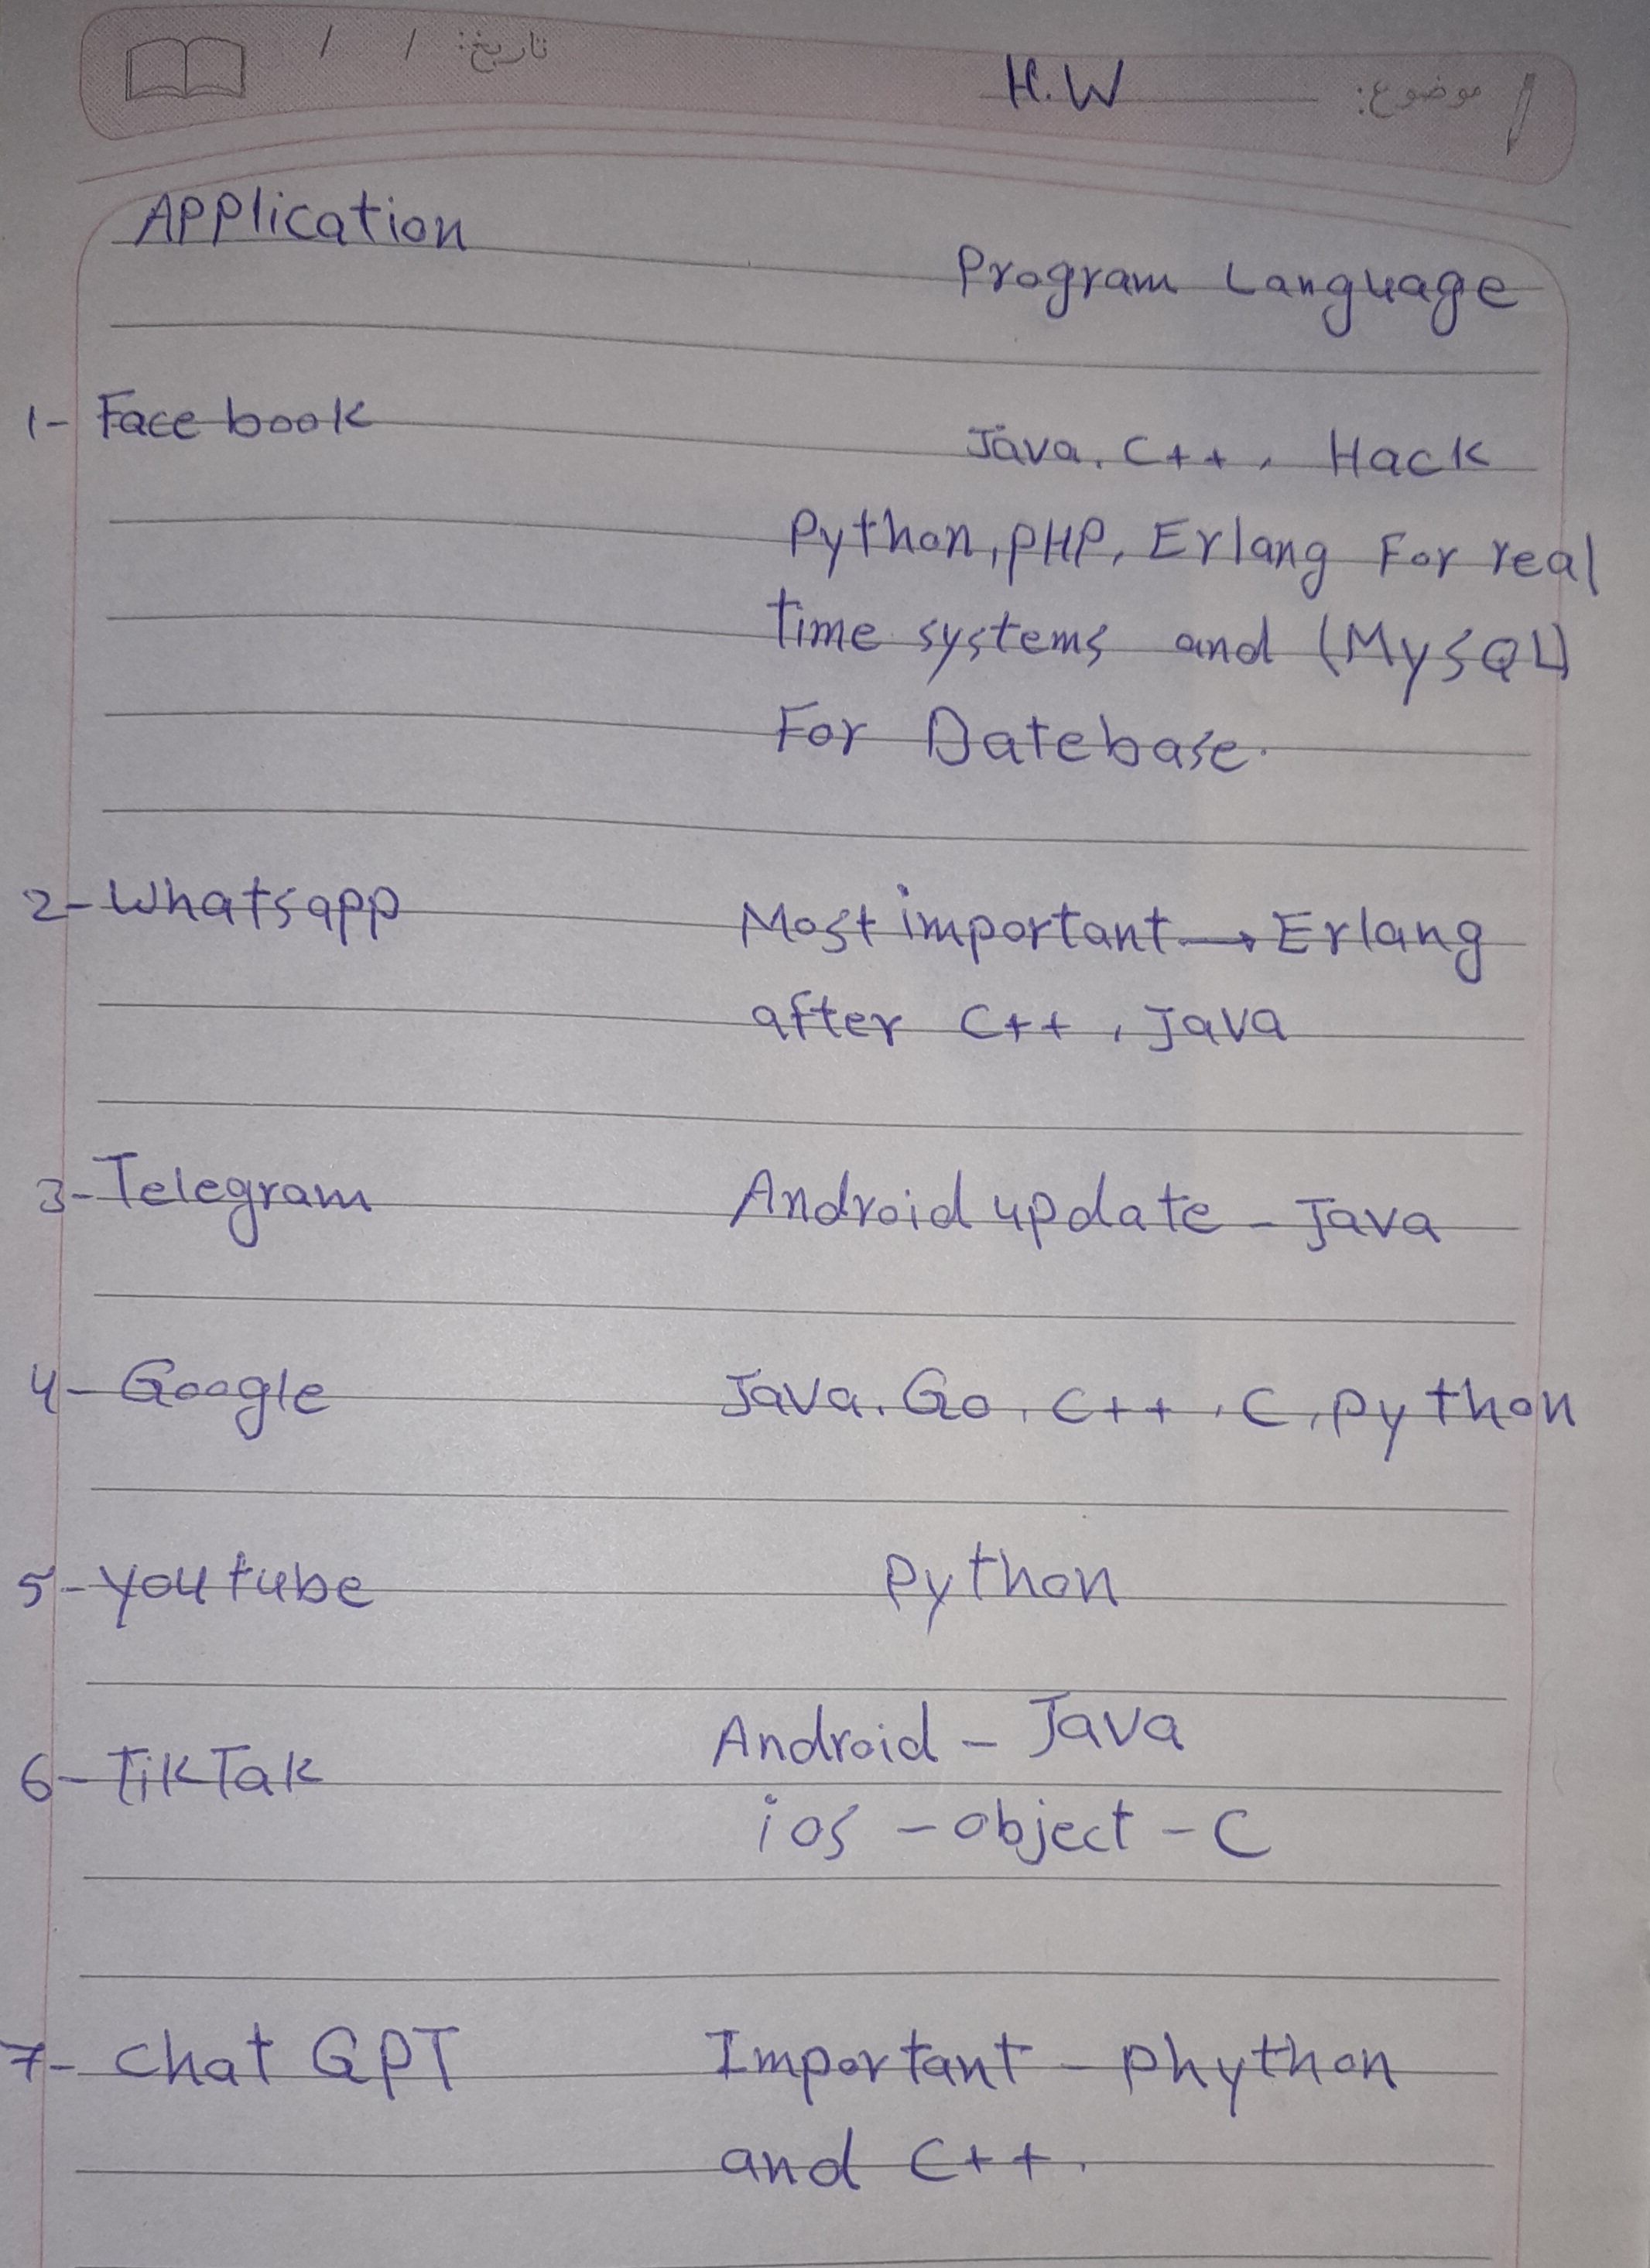 تاریخ: / /
موضوع: H.W
Application
Program Language
1- Face book
Java, C++, Hack
Python, PHP, Erlang For real
time systems and (MySQL)
For Datebase.
2- Whatsapp Most important → Erlang
after C++, Java
3- Telegram Android update - Java
4- Google Java, Go, C++, C, Python
5- Youtube Python
Android - Java
6- TikTak
ios - object - C
7- Chat GPT Important - Phython
and C++.